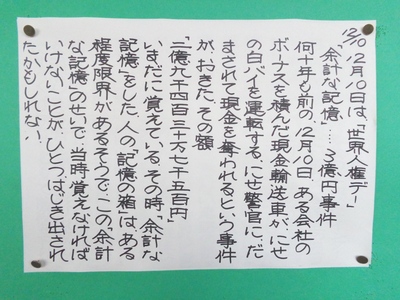 12/10 12月10日は、「世界人権デー」
「余計な記憶」……3億円事件
何十年も前の、12月10日、ある会社の
ボーナスを積んだ現金輸送車が、にせ
の白バイを運転する、にせ警官に、だ
まされて現金を奪われるという事件
が、おきた。その額
「二億九千四百三十万七千五百円」
いまだに覚えている。その時、「余計な
記憶」をした。人の「記憶の箱」は、ある
程度限界があるそうで、この「余計
な記憶」のせいで、当時、覚えなければ
いけないことが、ひとつ、はじき出され
たかもしれない。